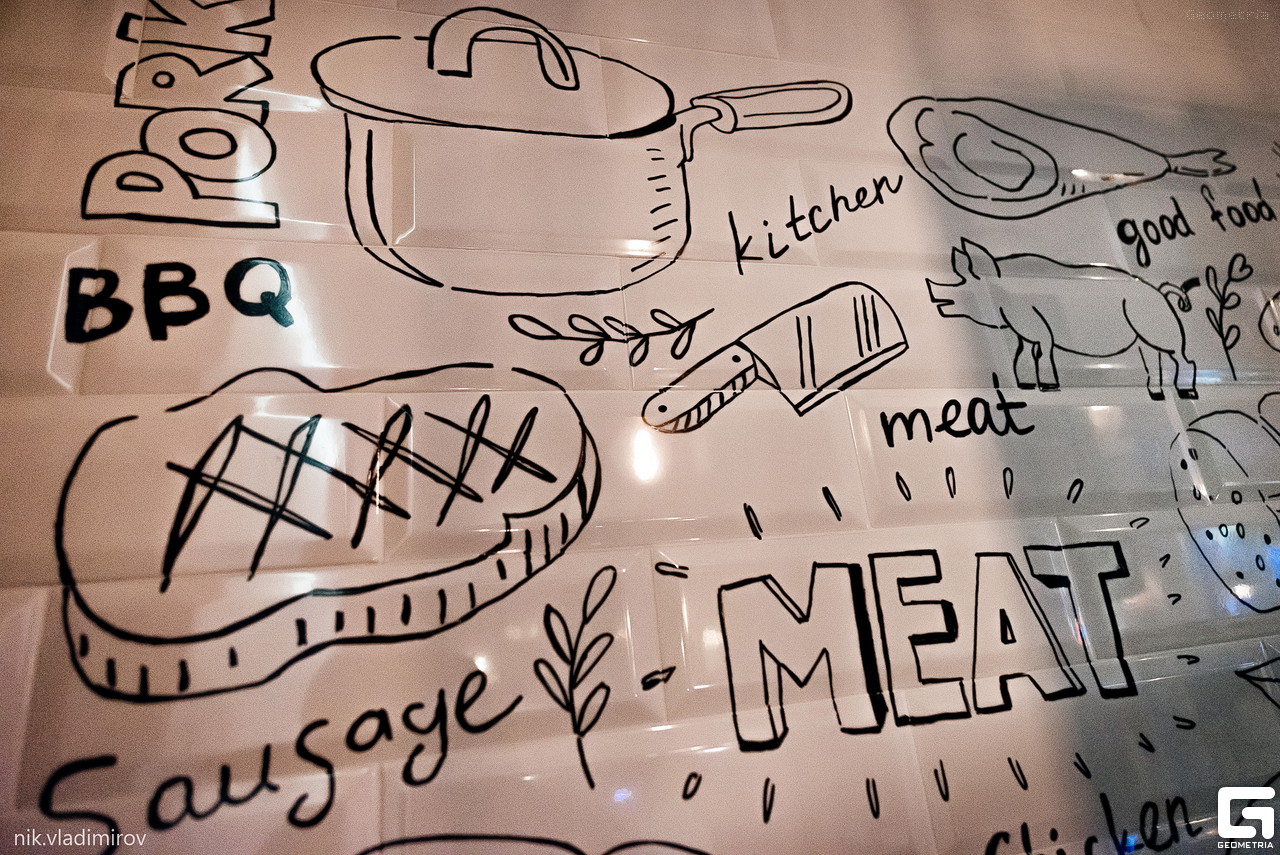 Geometria
PORK
kitchen
good food
BBQ
meat
MEAT
Sausage
chicken
nik.vladimirov
GEOMETRIA